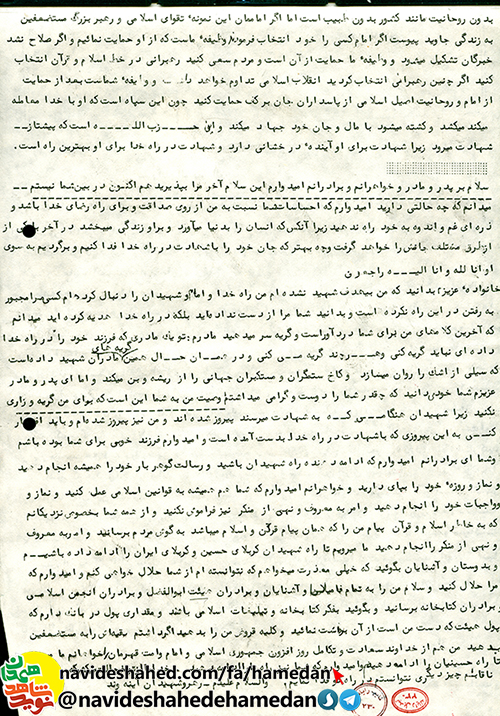 بدون روحانیت مانند کشور بدون طبیب است اما اگر امامان این نمونه تقوای اسلامی و رهبر بزرگ مستضعفین
به زندگی جاوید پیوست اگر امام کسی را خود انتخاب فرمود وظیفه ماست که از او حمایت نمائیم و اگر صلاح نشد
خبرگان تشکیل میشود و وظیفه ما حمایت از آن است و مردم سعی کنید رهبرانی در خط اسلام و قرآن انتخاب
کنید اگر چنین رهبرانی انتخاب کردید انقلاب اسلامی تداوم خواهد داشت و وظیفه شماست بعد از حمایت
از امام و روحانیت اصیل اسلامی از پاسداران جان بر کف حمایت کنید چون این سپاه است که او با خدا معامله
میکند میکشد و کشته میشود با مال و جان خود جهاد میکند و این حزب الله است که پیشتاز
شهادت میرود زیرا شهادت برای او آینده درخشانی دارد و شهادت در راه خدا برای او بهترین راه است.
سلام بر پدر و مادر و خواهرانم و برادرانم امیدوارم این سلام آخر مرا بپذیرید هم اکنون در بین شما نیستم
میدانم که چه حالتی دارید امیدوارم که احساسات شما نسبت به من از روی صداقت و برای راه رضای خدا باشد و
ذره ای غم و اندوه به خود راه ندهید زیرا آنکس که انسان را بدنیا میآورد و برا و زندگی میبخشد در آخر با یکی از
از طرق مختلف جانش را خواهد گرفت وچه بهتر که جان خود را باشهادت در راه خدا فدا کنیم و برگردیم به سوی
او انا لله و انا الیه راجعون
خانواده عزیزم بدانید که من بیهدف شهید نشده ام من راه خدا و امام و شهیدان را دنبال کرده ام کسی مرا مجبور
به رفتن در این راه نکرده است و بدانید شما مرا از دست نداده اید بلکه در راه خدا هدیه کرده اید میدانم
که آخرین کلامهای من برای شما دردآوراست و گریه سر میدهید مادرم: تو یک مادری که فرزند خود را در راه خدا
داده ای نباید گریه کنی وهر چند گریه می کنی و در همان حال همین گریه های مادران شهید داده است
که سیلی از اشک را روان میسازد و کاخ ستمگران و مستکبران جهانی را از ریشه و بن میکند و اما ای پدر و مادر
عزیزم شما خود میدانید که چقدر شما را دوست و گرامی میداشتم وصیت من به شما این است که برای من گریه و زاری
نکنید زیرا شهیدان هنگامی که به شهادت میرسند پیروز شده اند و من نیز پیروز شده ام و باید افتخار
کنی به این پیروزی که باشهادت در راه خدا بدست آمده است و امیدوارم فرزند خوبی برای شما بوده باشم
وشما ای برادرانم امیدوارم که ادامه دهنده راه شهیدان باشید و رسالت گوهر بار خود را همیشه انجام دهید
و نماز و روزه خود را بپای دارید و خواهرانم امیدوارم که شما هم همیشه به قوانین اسلامی عمل کنید و نماز و
واجبات خود را انجام دهید و امر به معروف و نهی از منکر نیز فراموش نکنید و از همه شما بخصوص نزدیکانم
که به خاطر اسلام و قرآن پیام من را که همان پیام قرآن و اسلام میباشد به گوش مردم برسانید و امر به معروف
و نهی از منکر را انجام دهید ما میرویم تا راه شهیدان کربلای حسین و کربلای ایران را ادامه داده باشیم
و بدوستان و آشنایان بگوئید که خیلی معذرت میخواهم که نتوانسته ام از شما حلال خواهی کنم و امیدوارم که
مرا حلال کنید و سلام من را به تمام فامیلان و آشنایان و برادران هیئت ابوالفضل و برادران انجمن اسلامی
برادران کتابخانه برسانید و بگوئید بفکر کتابخانه و تبلیغات اسلامی باشند و مقداری پول در بانک دارم که
پول هیئت که دست من است از آن برداشت نمائید و کلیه قروض من را بدهید اگر داشتم بقیه ای را به مستضعفین
بدهید من هم از خداوند سعادت و تکامل روز افزون جمهوری اسلامی و امام وامت قهرمان خواهانم
تا راه حسینیان را ادامه دهیم وامیدوارم که
ناقابلم چیز دیگری نتوانستم در راه او فدا نمایم. والسلام علیکم - رهرو شهیدان آینه وند
navideshahed.com/fa/hamedan
@navideshahedehamedan